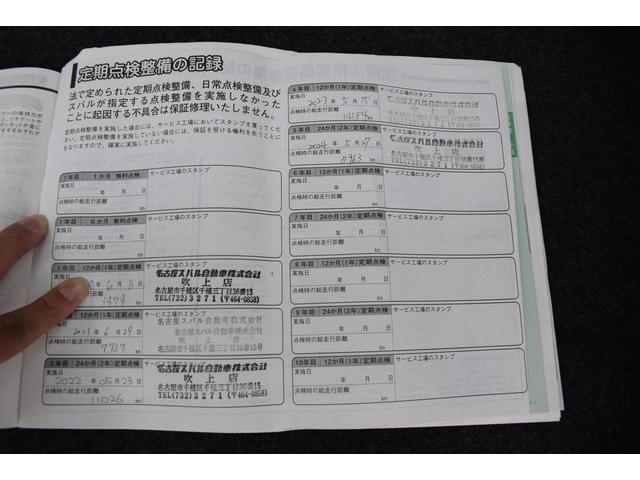 定期点検整備の記録
法で定められた定期点検整備、日常点検整備及び
スバルが指定する点検整備を実施しなかった
ことに起因する不具合は保証修理いたしません。
定期点検整備を実施した場合には、サービス工場においてスタンプを貰ってください。
定期点検整備を実施していない場合には、保証を受ける権利を失うことに
もなりますので、確実に実施してください。
1年目 1か月 無料点検 サービス工場のスタンプ
実施日
年 月 日
点検時の総走行距離
km
1年目 6か月 無料点検 サービス工場のスタンプ
実施日
年 月 日
点検時の総走行距離
km
1年目 12か月(1年)定期点検 サービス工場のスタンプ
年 6月 8日
3479
名古屋スバル自動車株式会社
吹上店
名古屋市千種区千種三丁目36番15号
TEL(732)3271(〒464-0858)
12か月(1年)定期点検 サービス工場のスタンプ
2021年 6月 29日
7,737
名古屋スバル自動車株式会社
吹上店
名古屋市千種区千種三丁目36番15号
3年目 24か月(2年)定期点検 サービス工場のスタンプ
実施日
2022年 05月 23日
点検時の総走行距離
11026 km
名古屋スバル自動車株式会社
吹上店
名古屋市千種区千種三丁目36番15
TEL(732)3271(〒464-0858)
4年目 12か月(1年)定期点検 サービス工場のスタンプ
実施日
2023年 5月 15日
点検時の総走行距離
14184 km
名古屋スバル自動車株式会社
吹上店
5年目 24か月(2年)定期点検 サービス工場のスタンプ
実施日
2024年 5月 27日
点検時の総走行距離
km
名古屋スバル自動車株式会社
吹上店
名古屋市千種区千種三丁目36番15
6年目 12か月(1年)定期点検 サービス工場のスタンプ
実施日
年 月 日
点検時の総走行距離
km
7年目 24か月(2年)定期点検 サービス工場のスタンプ
実施日
年 月 日
点検時の総走行距離
km
8年目 12か月(1年)定期点検 サービス工場のスタンプ
実施日
年 月 日
点検時の総走行距離
km
9年目 24か月(2年)定期点検 サービス工場のスタンプ
実施日
年 月 日
点検時の総走行距離
km
10年目 12か月(1年)定期点検 サービス工場のスタンプ
実施日
年 月 日
点検時の総走行距離
km